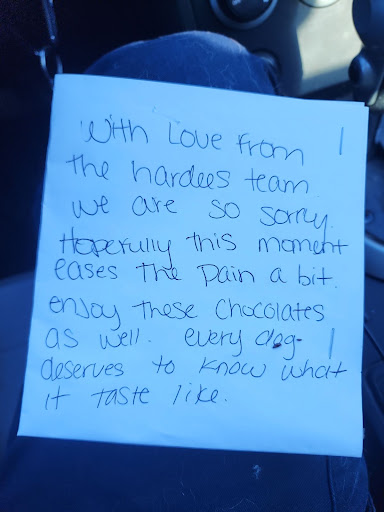 With Love from
the hardees team
we are so sorry.
Hopefully this moment
eases the pain a bit.
enjoy these chocolates
as well. every dog
deserves to know what
it taste like.